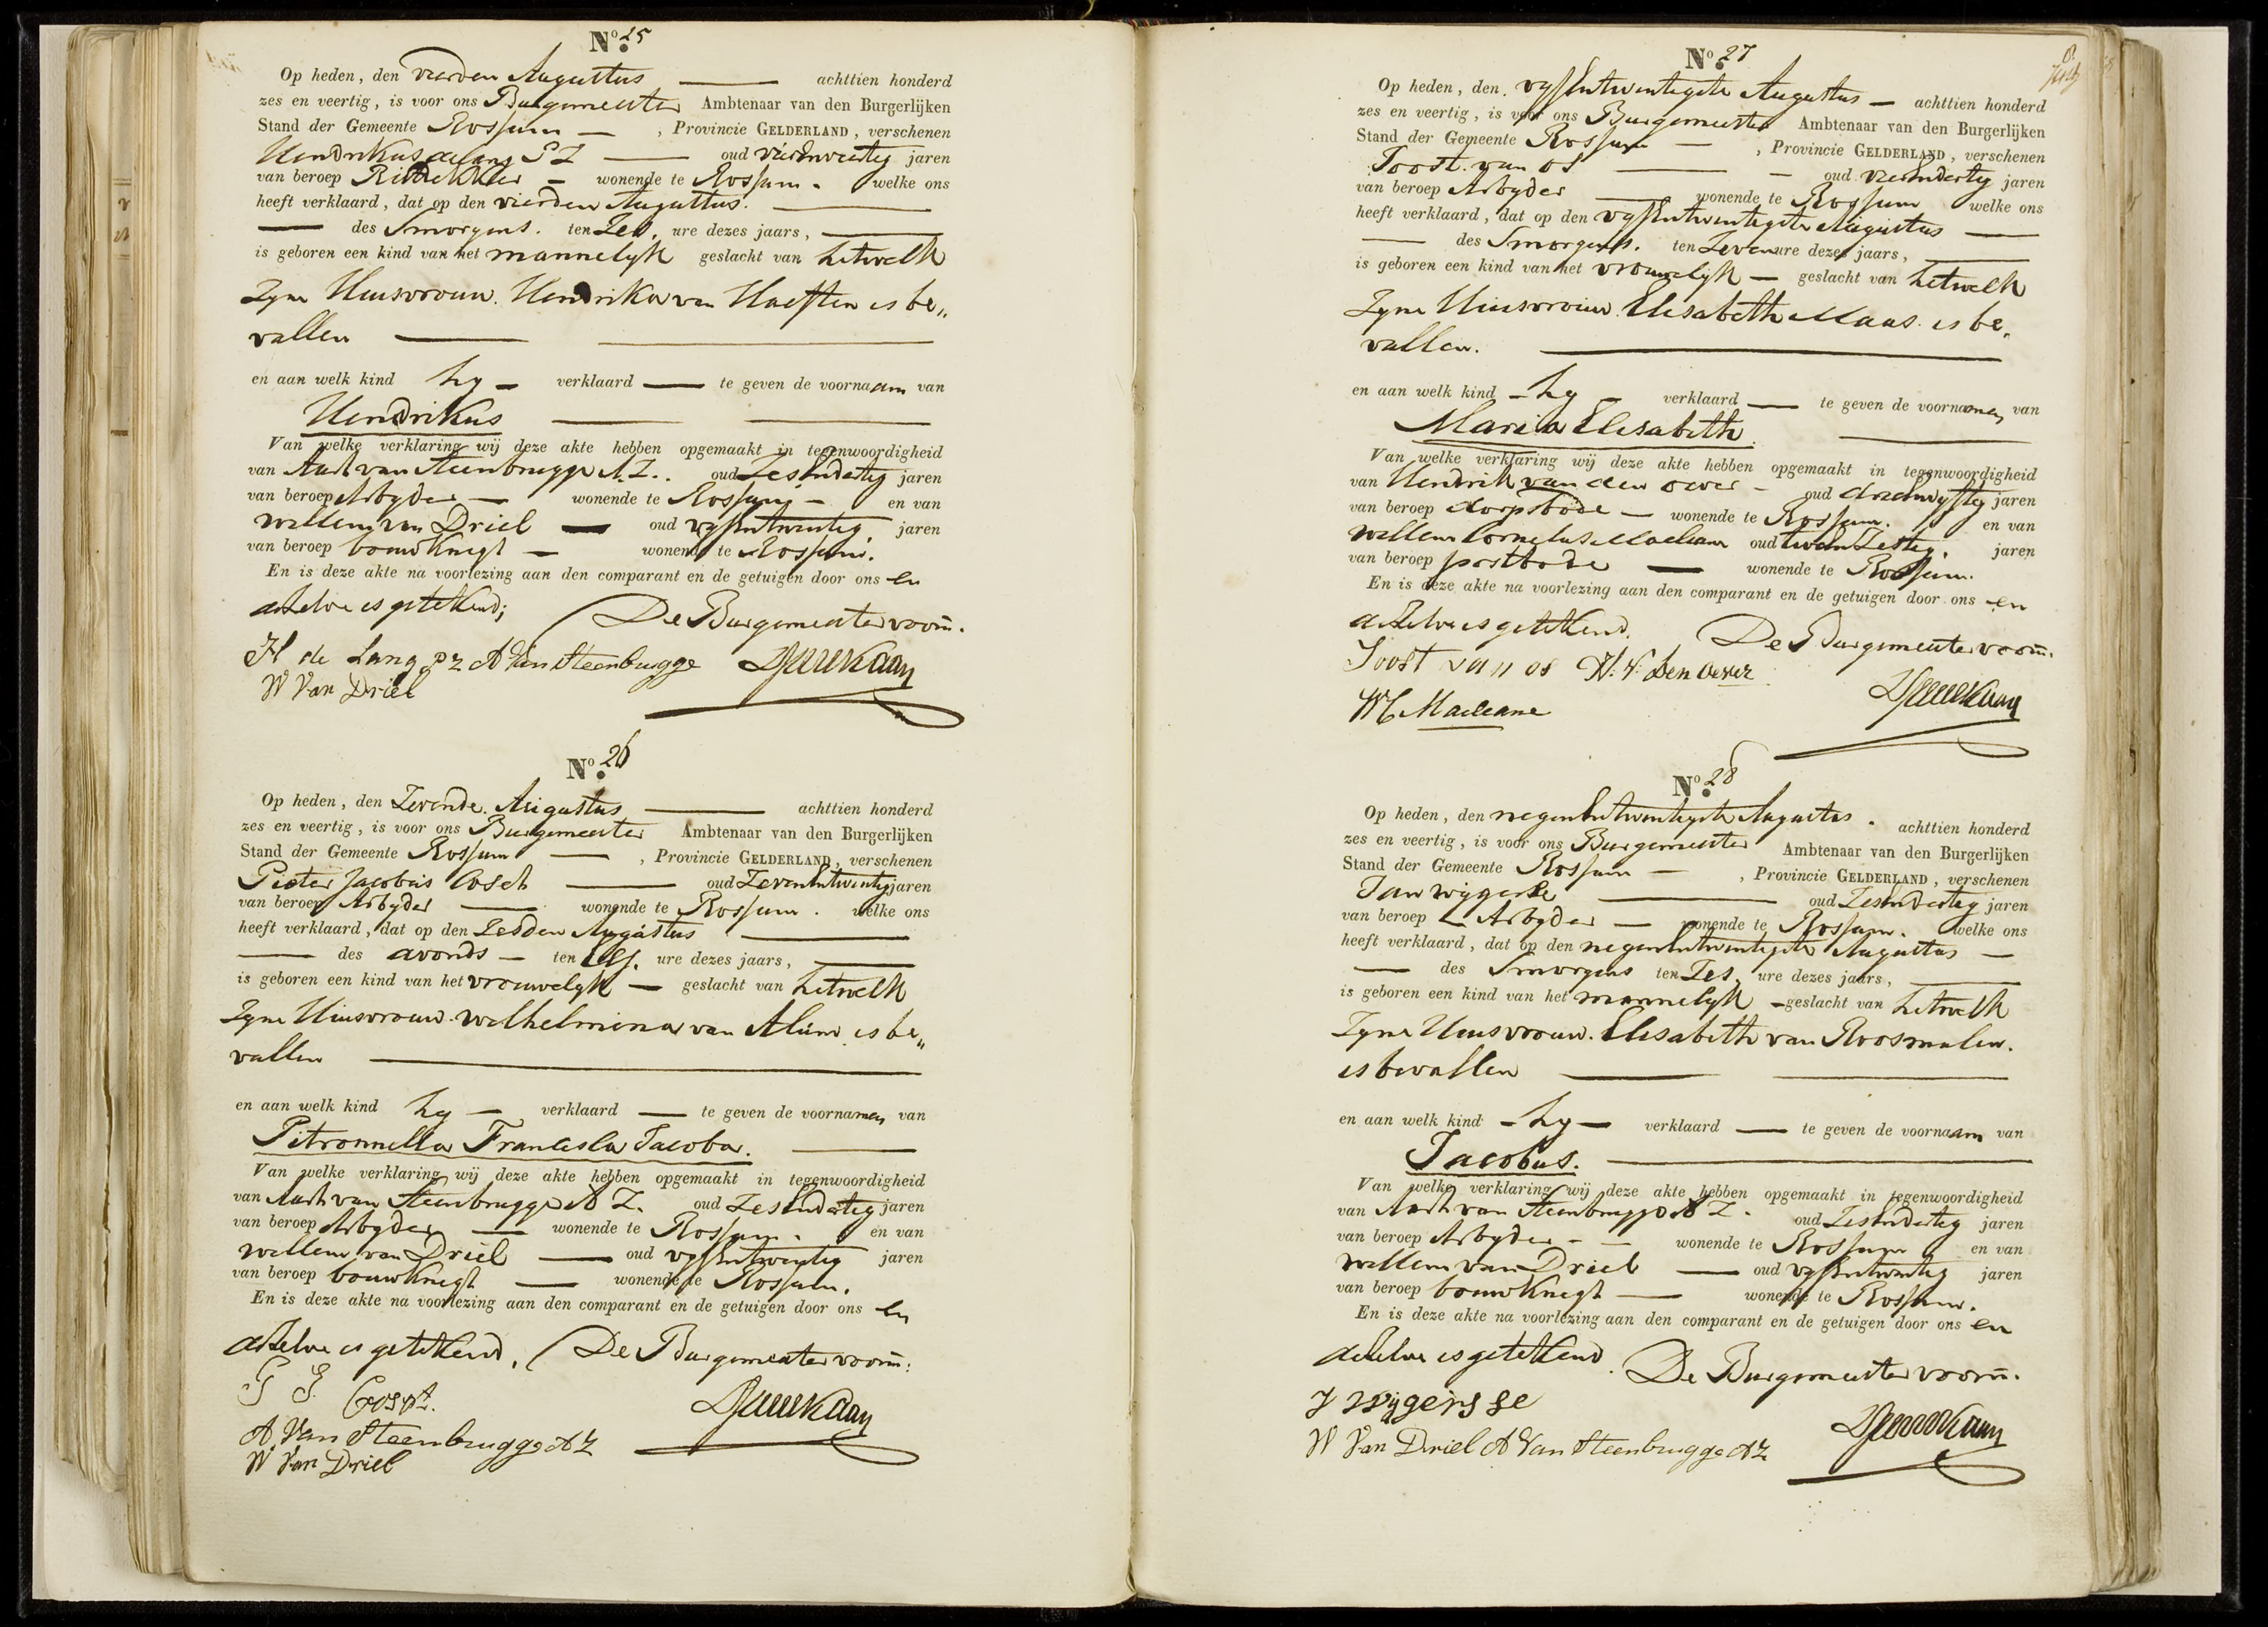 Nº. 25
Op heden, den vierden Augustus achttien honderd
zes en veertig, is voor ons Burgemeester Ambtenaar van den Burgerlijken
Stand der Gemeente Rossum, Provincie GELDERLAND, verschenen
Hendrikus de Lang P Z oud jaren
van beroep Rietdekker wonende te Rossum. welke ons
heeft verklaard, dat op den vierden Augustus.
des Smorgens. ten Zes, ure dezes jaars,
is geboren een kind van het mannelyk geslacht van hetwelk
Zyne Huisvrouw. Hendrika van Haeften is be„
vallen
en aan welk kind hy verklaard te geven de voornaam van
Hendrikus
Van welke verklaring wij deze akte hebben opgemaakt in tegenwoordigheid
van Aart van Steenbrugge A.Z.. oud Zesendertig jaren
van beroep Arbyder wonende te Rossum en van
Willem van Driel oud vyfentwintig jaren
van beroep bouwknegt wonende te Rossum.
En is deze akte na voorlezing aan den comparant en de getuigen door ons en
dezelve is getekend; De Burgemeester voorn.
H de Lang P z A Van Steenbrugge
W Van Driel
Nº. 26
Op heden, den Zevende. Augustus achttien honderd
zes en veertig, is voor ons Burgemeester Ambtenaar van den Burgerlijken
Stand der Gemeente Rossum, Provincie GELDERLAND, verschenen
Pieter Jacobus oud Zevenentwintig jaren
van beroep Arbyder wonende te Rossum. welke ons
heeft verklaard, dat op den Zesden Augustus
des avonds ten Elf. ure dezes jaars,
is geboren een kind van het vrouwelyk geslacht van hetwelk
Zyne Huisvrouw. Wilhelmina van is be„
vallen
en aan welk kind hy verklaard te geven de voornamen van
Pitronnella Franciska Jacoba.
Van welke verklaring wij deze akte hebben opgemaakt in tegenwoordigheid
van Aart van Steenbrugge A Z. oud Zesendertig jaren
van beroep Arbyder wonende te Rossum. en van
Willem van Driel oud vyfentwintig jaren
van beroep bouwknegt wonende te Rossum.
En is deze akte na voorlezing aan den comparant en de getuigen door ons en
dezelve is getekend. De Burgemeester voorn:
A. Van Steenbrugge A Z
W Van Driel
Nº. 27
Op heden, den. vyfentwintigste Augustus achttien honderd
zes en veertig, is voor ons Burgemeester Ambtenaar van den Burgerlijken
Stand der Gemeente Rossum, Provincie GELDERLAND, verschenen
Joost van os oud vierendertig jaren
van beroep Arbyder wonende te Rossum welke ons
heeft verklaard, dat op den vyfentwintigste Augustus
des Smorgens. ten Zeven ure dezes jaars,
is geboren een kind van het vrouwelyk geslacht van hetwelk
Zyne Huisvrouw. Elisabeth Maas. is be„
vallen.
en aan welk kind hy verklaard te geven de voornamen van
Maria Elisabeth.
Van welke verklaring wij deze akte hebben opgemaakt in tegenwoordigheid
van Hendrik van den oever oud drieenvyftig jaren
van beroep dorpsbode wonende te Rossum. en van
Willem Cornelus Macleane oud tweenZestig. jaren
van beroep postbode wonende te Rossum.
En is deze akte na voorlezing aan den comparant en de getuigen door ons en
dezelve is getekend. De Burgemeester voorn.
Joost van os H. V. den Oever
WC Macleane
Nº. 28
Op heden, den negenentwintigste Augustus. achttien honderd
zes en veertig, is voor ons Burgemeester Ambtenaar van den Burgerlijken
Stand der Gemeente Rossum, Provincie GELDERLAND, verschenen
Jan Wijgerse oud Zesendertig jaren
van beroep Arbyder wonende te Rossum. welke ons
heeft verklaard, dat op den negenentwintigste Augustus
des Smorgens ten Zes, ure dezes jaars,
is geboren een kind van het mannelyk geslacht van hetwelk
Zyne Huisvrouw. Elisabeth van Roosmalen.
is bevallen
en aan welk kind hy verklaard te geven de voornaam van
Jacobus.
Van welke verklaring wij deze akte hebben opgemaakt in tegenwoordigheid
van Aart van Steenbrugge A Z. oud Zesendertig jaren
van beroep Arbyder wonende te Rossum en van
Willem van Driel oud vyfentwintig jaren
van beroep bouwknegt wonende te Rossum.
En is deze akte na voorlezing aan den comparant en de getuigen door ons en
dezelve is getekend. De Burgemeester voorn.
J Wijgersse
W Van Driel A Van Steenbrugge A Z